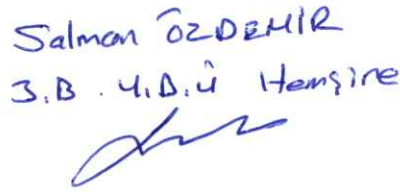 Salman ÖZDEMİR
3.B. Y.B.Ü Hemşire